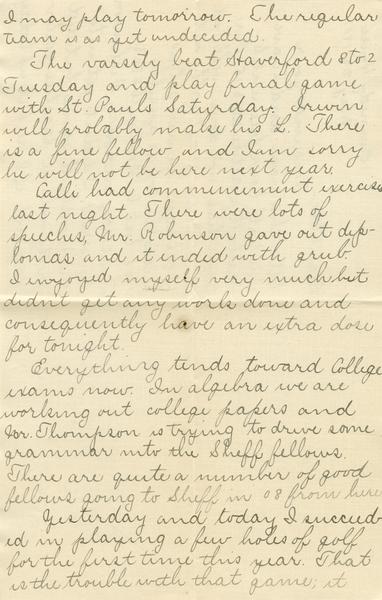 I may play tomorrow. The regular
team is as yet undecided.
The varsity beat Haverford 8 to 2
Tuesday and play final game
with St. Pauls Saturday. Irwin
will probably make his L. There
is a fine fellow and I am sorry
he will not be here next year.
Calli had commencement exercises
last night. There were lots of
speeches, Mr. Robinson gave out dip-
lomas and it ended with grub.
I enjoyed myself very much but
didn't get any work done and
consequently have an extra dose
for tonight.
Everything tends toward College
exams now. In algebra we are
working out college papers and
Mr. Thompson is trying to drive some
grammar into the Sheff fellows.
There are quite a number of good
fellows going to Sheff in 08 from here
Yesterday and today I succeed-
ed in playing a few holes of golf
for the first time this year. That
is the trouble with that game; it